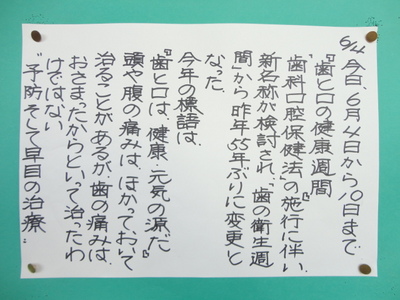 6/4
今日、6月4日から10日まで
『歯と口の健康週間』
“歯科口腔保健法”の施行に伴い、
新名称が検討され、“歯の衛生週
間”から昨年55年ぶりに変更と
なった
今年の標語は、
『歯と口は、健康・元気の源だ』
頭や腹の痛みは、ほかっておいて
治ることがあるが、歯の痛みは、
おさまったからといって治ったわ
けではない
“予防そして早目の治療”